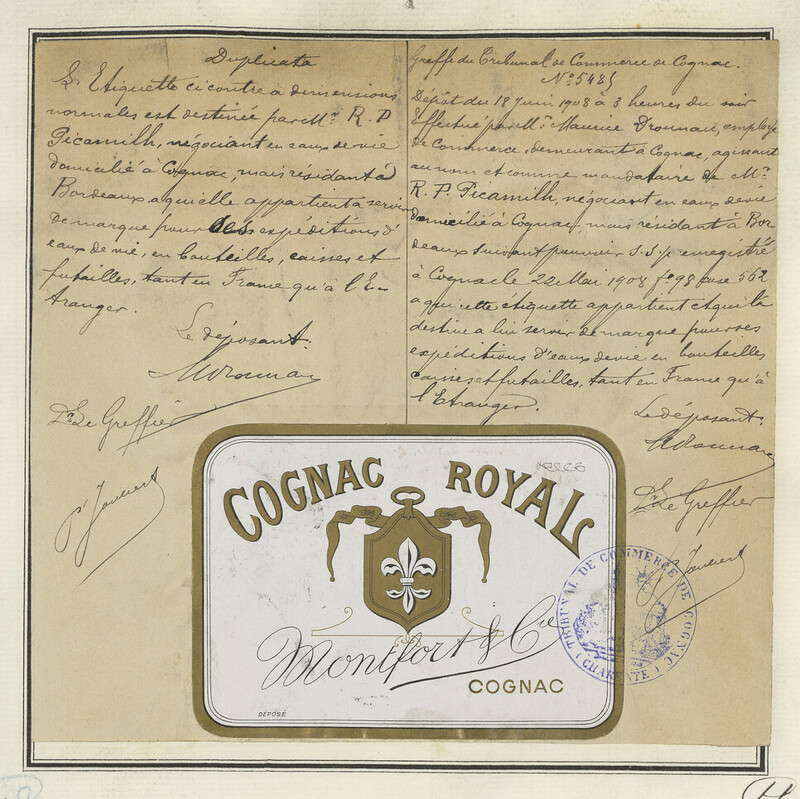 Duplicata
L'Etiquette ci contre à dimensions
normales est destinée par Mr R. P
Picamilh, négociant en eaux de vie
domicilié à Cognac, mais résidant à
Bordeaux, a qui elle appartient a servir
de marque pour ses expéditions d'
eaux de vie, en bouteilles, caisses et
futailles, tant en France qu'à l'E-
tranger.
Le déposant.
Dr Le Greffier
Greffe du Tribunal de Commerce de Cognac.
No 548
Dépôt du 18 Juin 1908 à 3 heures du soir
Effectué par Mr Maurice Dronnau, employé
de Commerce, demeurant à Cognac, agissant
au nom et comme mandataire de Mr
R. P. Picamilh, négociant en eaux de vie
domicilié à Cognac mais résidant à Bor
deaux suivant pouvoir S.S.p enregistré
à Cognac le 22 Mai 1908 fo 98 case 562
a qui cette étiquette appartient et qui la
destine a lui servir de marque pour ses
expéditions d'eaux de vie en bouteilles
caisses et futailles, tant en France qu'à
l'Etranger.
Le déposant.
Dr Le Greffier
COGNAC ROYAL
Montfort & Cie
COGNAC
DÉPOSÉ
TRIBUNAL DE COMMERCE DE COGNAC
(CHARENTE)